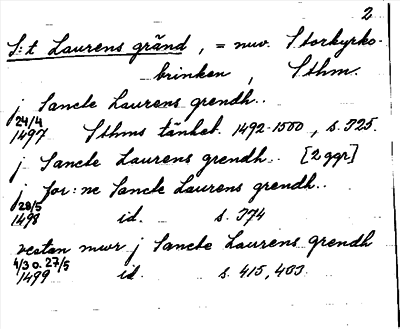 2
S:t Laurens gränd, = nuv. Storkyrko-
brinken, Sthm.
j Sancte Laurens grendh..
24/4
1497 Sthms tänkeb. 1492-1500, s. 325.
j Sancte Laurens grendh.. [2 ggr.]
j for:ne Sancte Laurens grendh..
28/5
1498 id. s. 374
vesten mwr j Sancte Laurens grendh
4/3 o. 27/5
1499 id. s. 415, 403